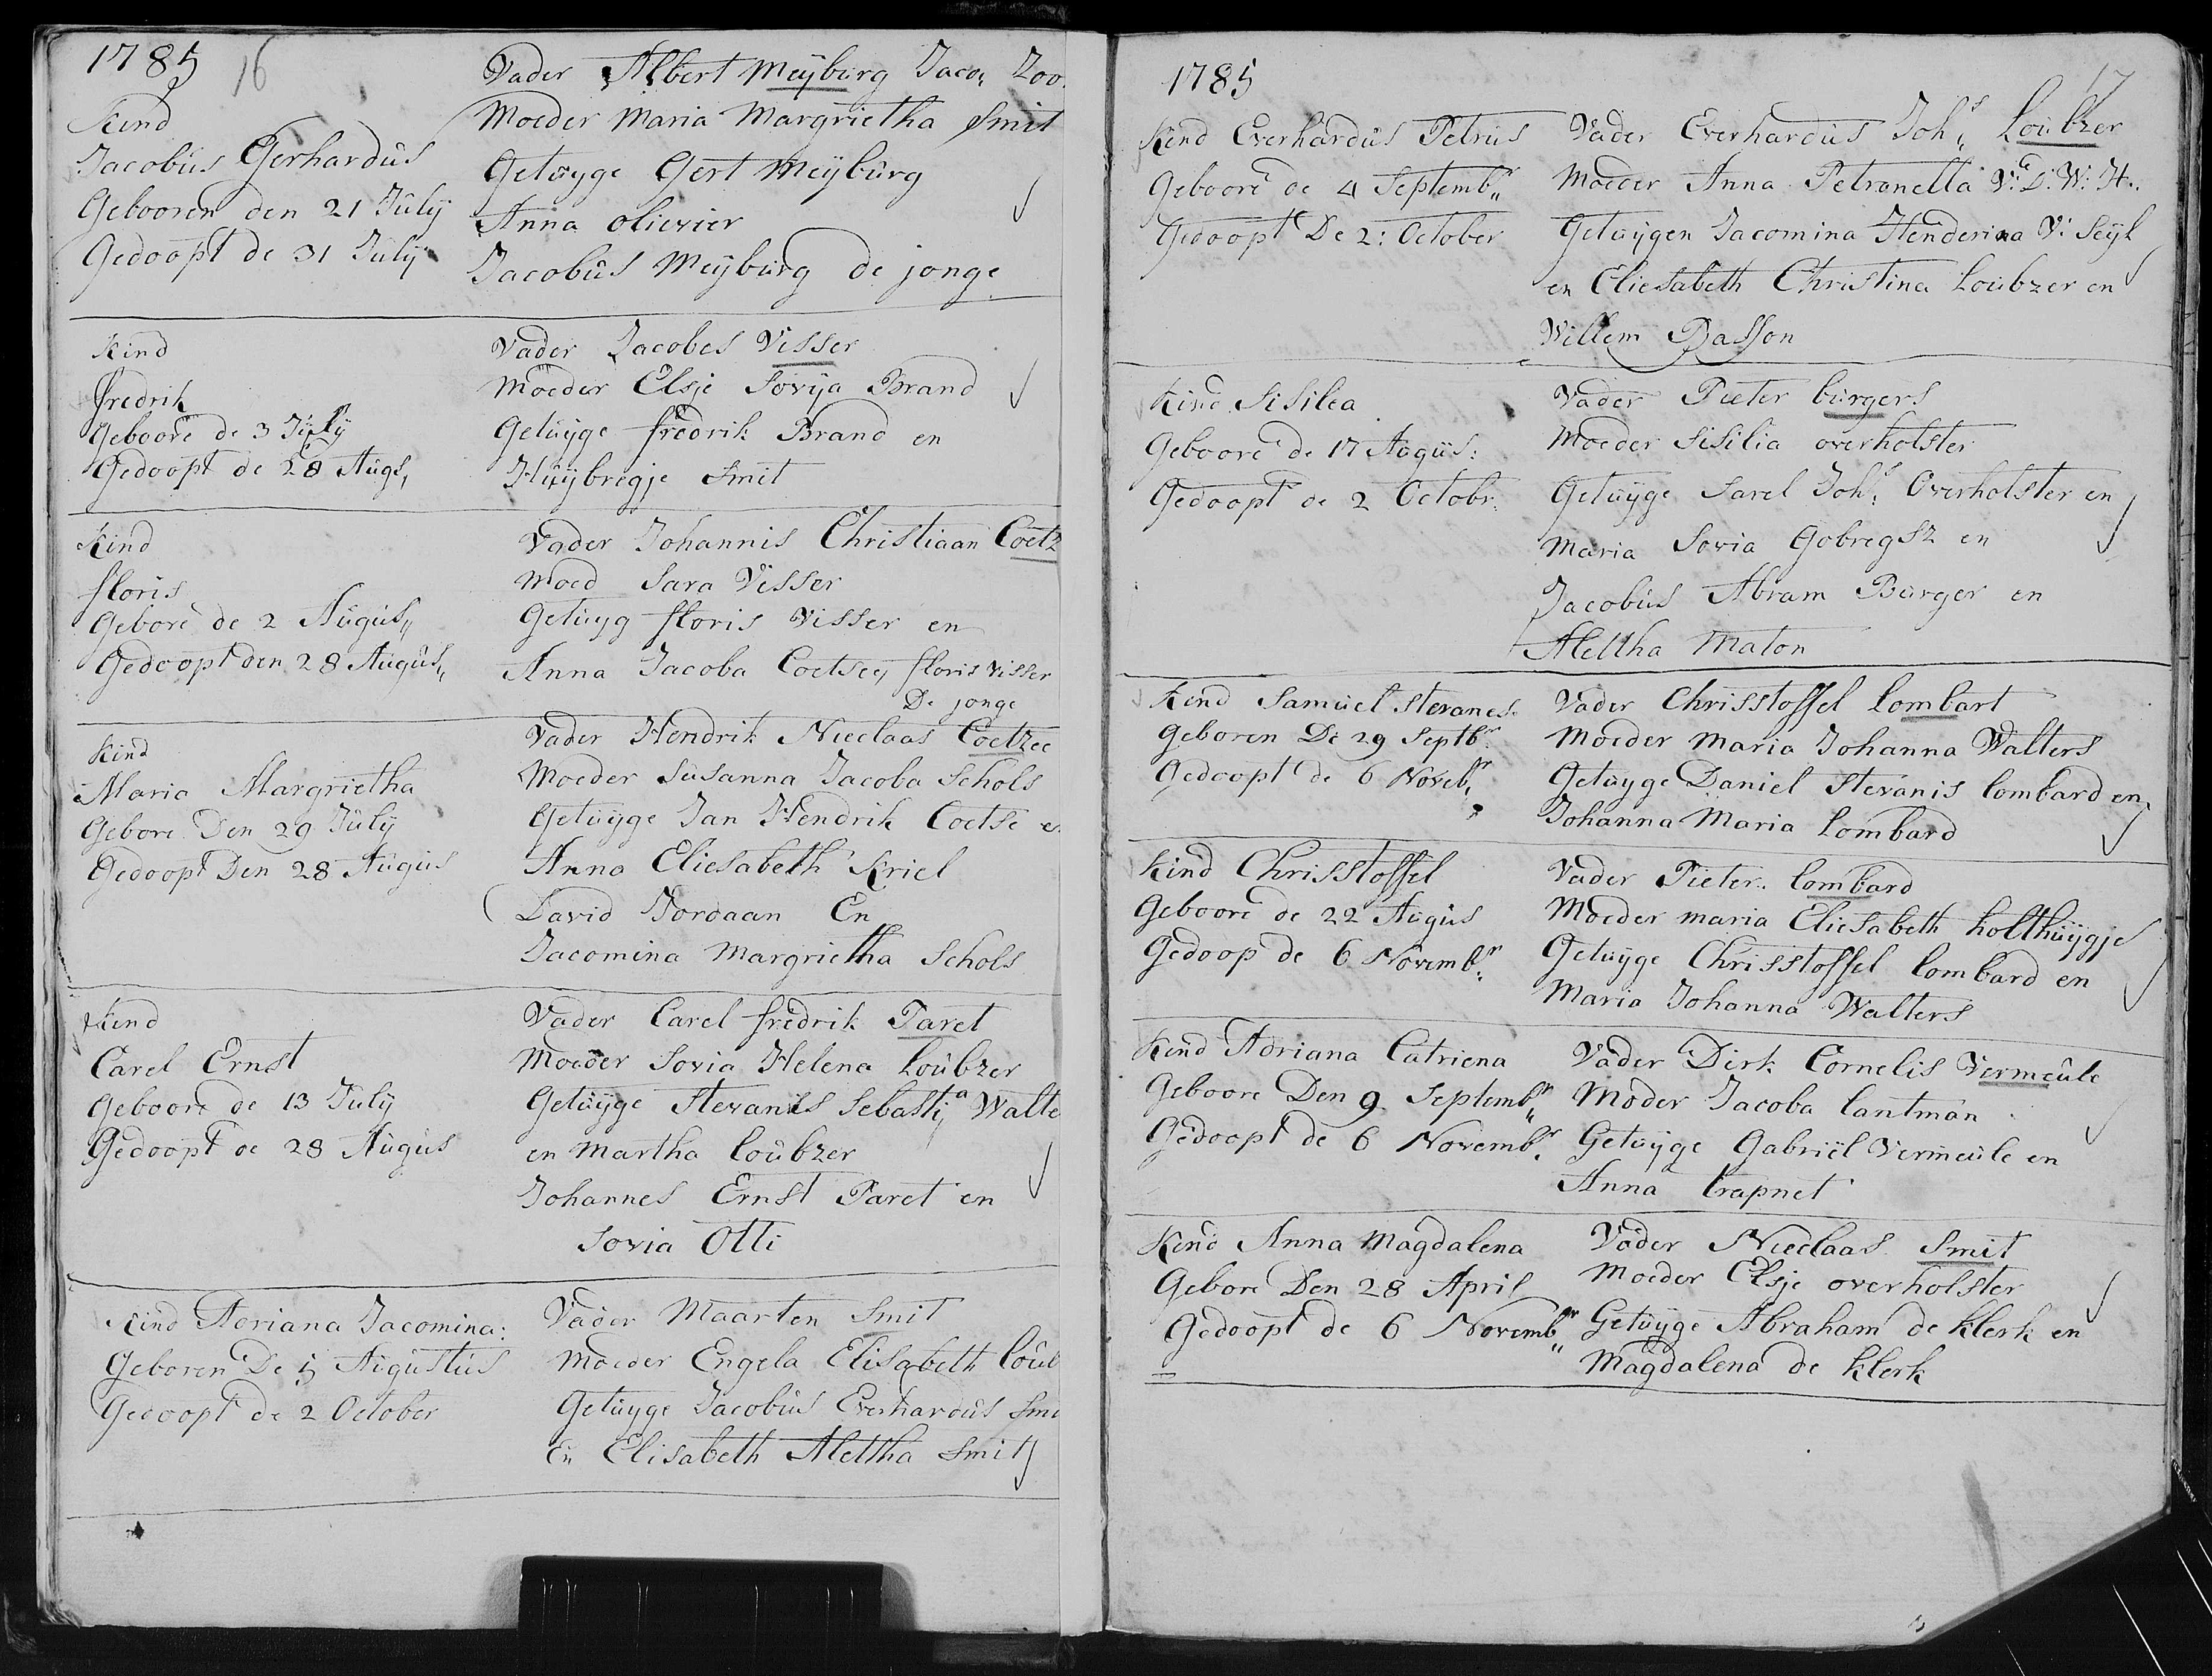 1785 16
Kind
Jacobus Gerhardus
Gebooren den 21 Julÿ
Gedoopt de 31 Julÿ
Vader Albert Meÿburg Jaco: Zoo.
Moeder Maria Margrietha Smit
Getuÿge Gert Meÿburg
Anna olievier
Jacobus Meÿburg de jonge
Kind
fredrik
Geboore de 3 Julÿ
Gedoopt de 28 Augs,
Vader Jacobes Visser
Moeder Elsje Sovÿa Brand
Getuÿge fredrik Brand en
Huÿbregje Smit
Kind
floris
Gebore de 2 Augus,,
Gedoopt den 28 Augus,,
Vader Johannis Christiaan Coetz
Moed Sara Visser
Getuÿg floris Visser en
Anna Jacoba Coetsee, floris Visser
De jonge
Kind
Maria Margrietha
Gebore Den 29 Julÿ
Gedoopt Den 28 Augus
Vader Hendrik Nieclaas Coetzee
Moeder Susanna Jacoba Schols
Getuÿge Jan Hendrik Coetse en
Anna Eliesabeth Kriel
David Jordaan En
Jacomina Margrietha Schols
Kind
Carel Ernst
Geboore de 13 Julÿ
Gedoopt de 28 Augus
Vader Carel fredrik Paret
Moeder Sovia Helena Loubzer
Getuÿge Stevanis Sebasti,a Walte
en Martha Loubzer
Johannes Ernst Paret en
Sovia Otti
Kind Adriana Jacomina:
Geboren De 5 Augustus
Gedoopt de 2 October
Vader Maarten Smit
Moeder Engela Elisabeth Loub
Getuÿge Jacobus Everhardus Smi
En Elisabeth Alettha Smit
1785 17
Kind Everhardus Petrus
Geboore de 4 Septembr,,
Gedoopt De 2: October
Vader Everhardus Johs,, Loubzer
Moeder Anna Petronella V:D:W:H:
Getuÿgen Jacomina Henderina V: Seÿl
en Eliesabeth Christina Loubzer en
Willem Basson
Kind Sisilea
Geboore de 17 Augus:
Gedoopt de 2 Octobr:
Vader Pieter burgers
Moeder Sisilia overholster
Getuÿge Sarel Johs: Overholster en
Maria Sovia Gobregsz en
Jacobus Abram Burger en
Alettha Maton
Kind Samuel Stevanes.
Geboren De 29 Septbr:
Gedoopt de 6 Novebr,
Vader Chrisstoffel Lombart
Moeder Maria Johanna Walters
Getuyge Daniel Stevanis Lombard en
Johanna Maria Lombard
Kind Chrisstoffel
Geboore de 22 Augus
Gedoop de 6 Novembr:
Vader Pieter Lombard
Moeder Maria Eliesabeth Holthuÿgje
Getuÿge Chrisstoffel Lombard en
Maria Johanna Walters
Kind Adriana Catriena
Geboore Den 9 Septembr,,
Gedoopt de 6 Novembr:
Vader Dirk Cornelis Vermeule
Moder Jacoba Lantman
Getuÿge Gabriel Vermeule en
Anna Trapnet
Kind Anna Magdalena
Gebore Den 28 April
Gedoopt de 6 Novembr,,
Vader Nieclaas Smit
Moeder Elsje overholster
Getuÿge Abraham de Klerk en
Magdalena de Klerk